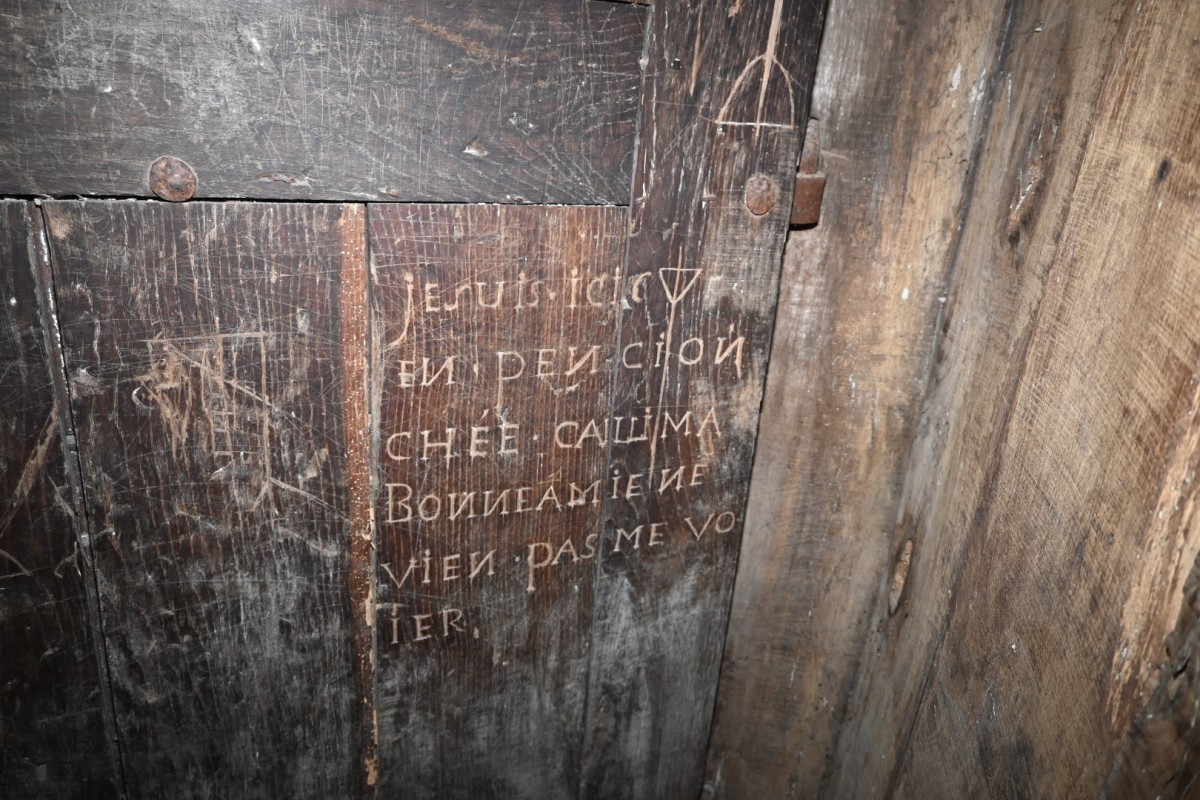 JESUIS·ICIC
EN·PENCION
CHÉE·CAUIMA
BONNEAMIENE
VIEN·PAS ME VO·
IER.